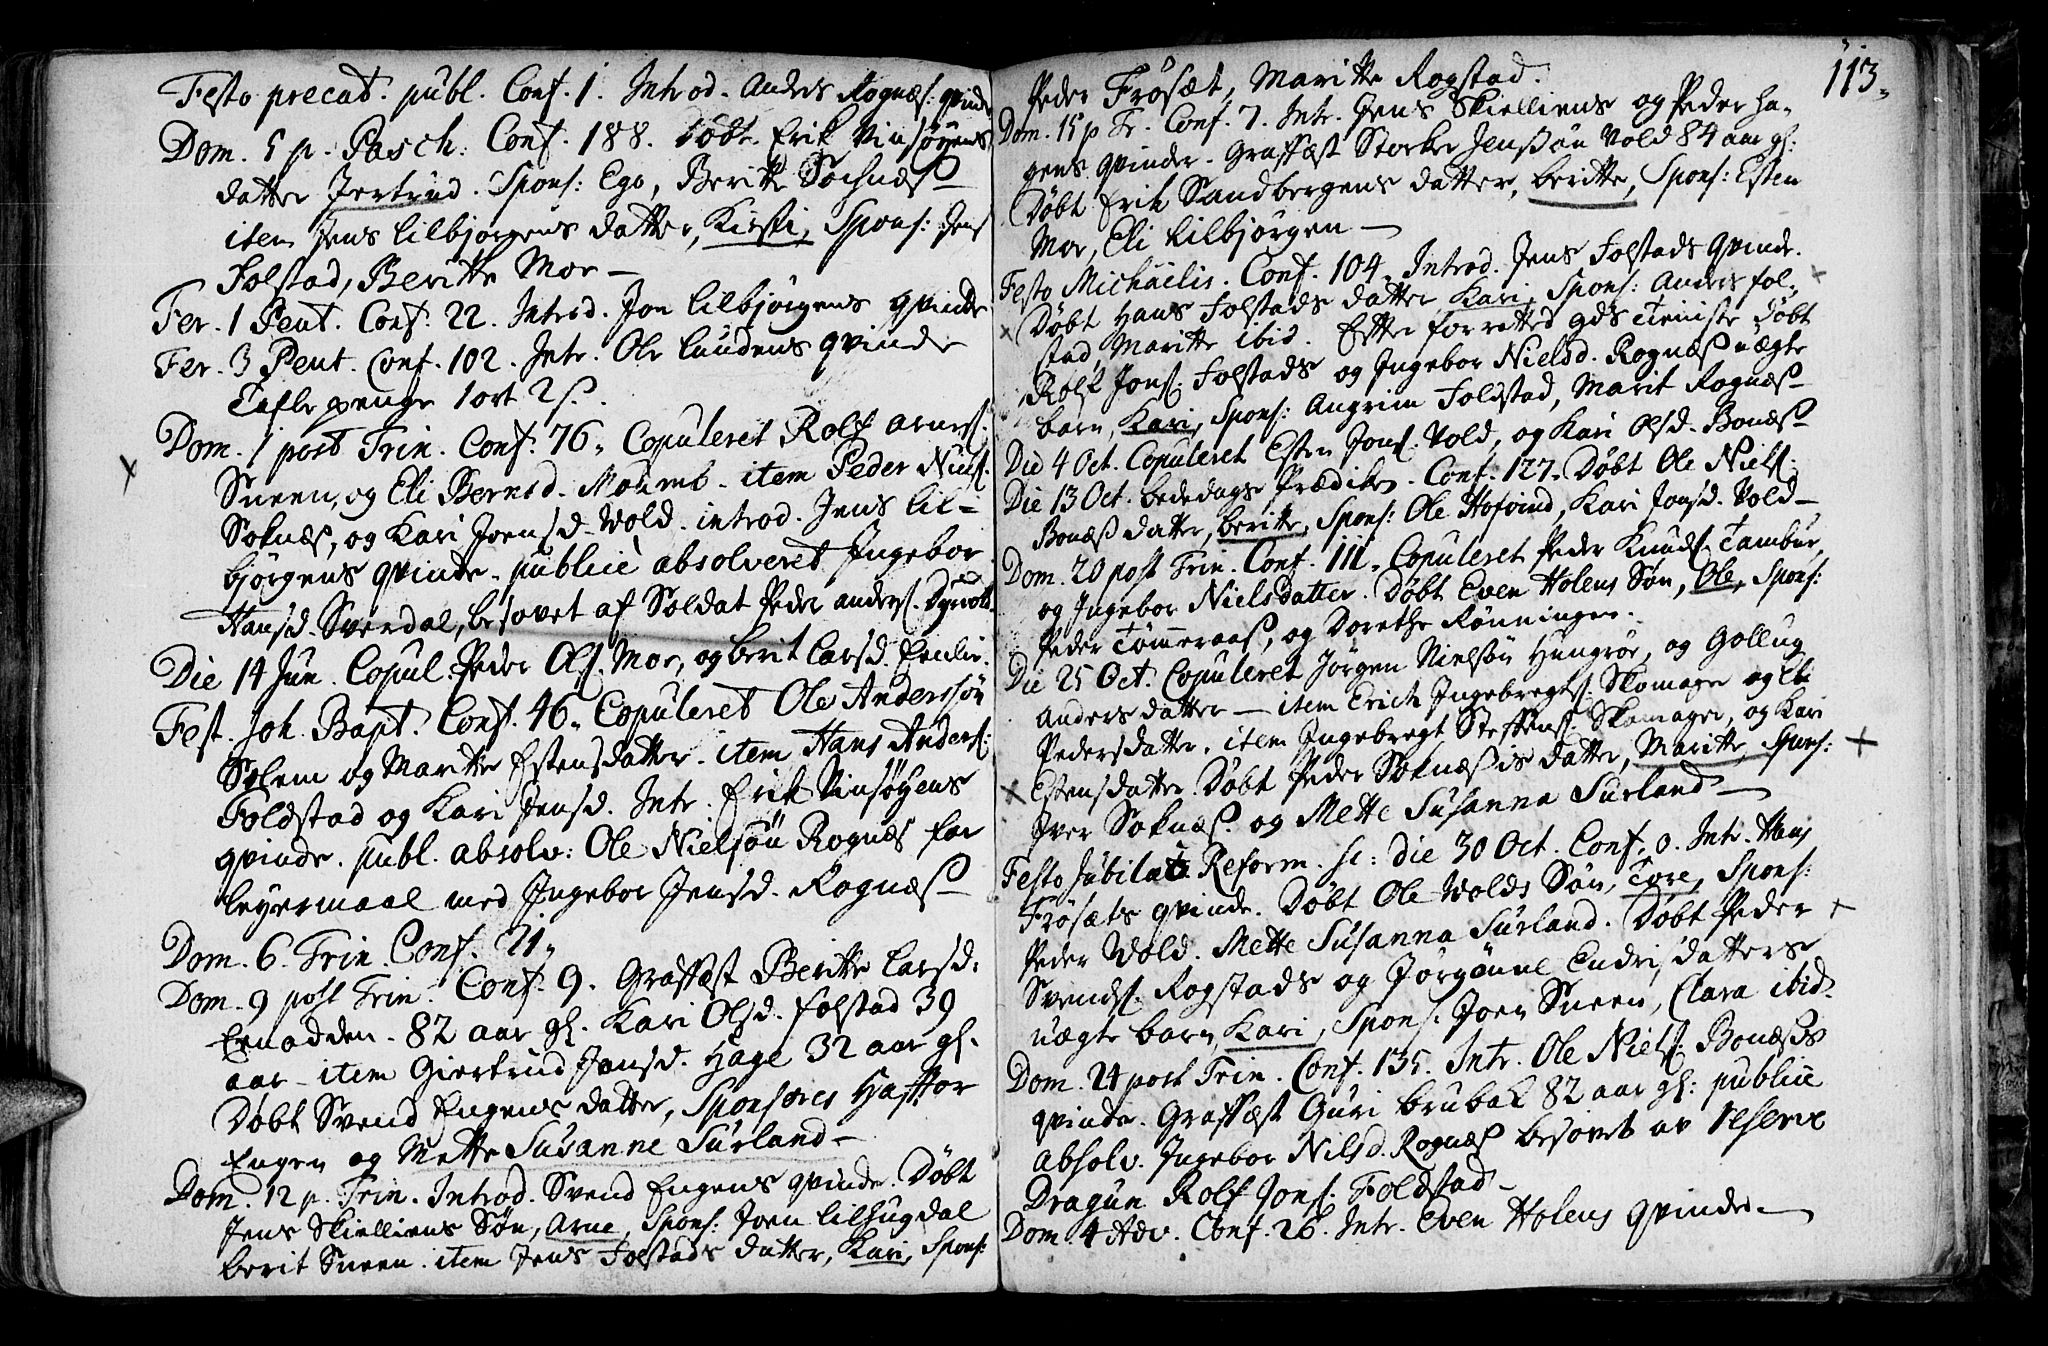 Festo precat. publ. Conf. 1. Introd. Anders Rognæs: qvinde
Dom. 5 p. Pasch: Conf. 188. Døbt Erik Vinsøyens
datter Jertrud. Spons: Ego, Beritte Sochnæs
item Jens Lilbjørgens datter, Kirsti, Spons: Jens
Folstad, Beritte Moe
Fer. 1 Pent. Conf. 22. Introd. Jon Lilbjørgens qvinde
Fer. 3 Pent. Conf. 102. Intr. Ole Laudens qvinde
Tafle penge 1 ort 2 s.
Dom. 1 post Trin. Conf. 76. Copuleret Rolf Arnes:
Sneen, og Eli Berns d. Moume. item Peder Niels:
Soknæs, og Kari Joensd. Wold. introd. Jens Lil-
bjørgens qvinde. publice absolveret Ingebor
Hansd. Sverdal, besovet af Soldat Peder Anders:
Die 14 Jun. Copul. Peder Ols: Moe, og Berit Larsd.
Fest. Joh. Bapt. Conf. 46. Copuleret Ole Anderssøn
Solem og Maritte Estensdatter. item Hans Anders:
Foldstad og Kari Jensd. Intr. Erik Vinsøyens
qvinde. publ. absolv: Ole Nielsøn Rognæs for
leyermaal med Ingebor Jensd. Rognæs
Dom. 6. Trin. Conf. 71.
Dom. 9 post Trin. Conf. 9. Graffæst Beritte Larsd:
Enodden. 82 aar gl. Kari Olsd. Folstad 39
aar - item Giertrud Jonsd. Hage 32 aar gl.
Døbt Svend Engens datter, Sponsores Haftor
Engen og Mette Susanne Surland
Dom. 12 p. Trin. Introd. Svend Engens qvinde. Døbt
Jens Skielliens Søn, Arne, Spons: Joen Lilhugdal
Berit Sneen. item Jens Folstads datter, Kari, Spons:
113.
Peder Frøsæt, Maritte Rogstad.
Dom. 15 p Tr. Conf. 7. Intr. Jens Skielliens og Peder Ha-
gens qvinder. Graffæst Storker Jenssøn Vold 84 aar gl:
Døbt Erik Sandbergens datter, Beritte, Spons: Esten
Moe, Eli Lilbjørgen
Festo Michaelis. Conf. 104. Introd. Jens Folstads qvinde.
Døbt Hans Folstads datter Kari, Spons: Anders Fol-
stad, Maritte ibid. Efter forretted Gds Tieniste døbt
Rolf Jons: Folstads og Ingebor Nielsd. Rognæs uægte
barn, Kari, Spons: Angrim Foldstad, Marit Rognæs
Die 4 Oct. Copuleret Esten Jons: Vold, og Kari Olsd. Bonæs
Die 13 Oct. bededags Prædiken. Conf. 127. Døbt Ole Niels:
Bonæs datter, Beritte, Spons: Ole Hofvind, Kari Jonsd. Vold
Dom. 20 post Trin. Conf. 111. Copuleret Peder Knuds: Tambur,
og Ingebor Nielsdatter. Døbt Even Holens Søn, Ole, Spons:
Peder Tømmeraas, og Dorethe Rønningen.
Die 25 Oct. Copuleret Jørgen Nielsøn Hungrøe, og Gollug
Anders datter - item Erich Ingebregts: Skomager og Eli
Pedersdatter. item Ingebregt Steffens: Skomager, og Kari
Estensdatter. Døbt Peder Soknæssis datter, Maritte, Spons:
Iver Soknæs. og Mette Susanna Surland
Festo Jubilæo Reform. sc: die 30 Oct. Conf. 0. Intr. Hans
Frøsæts qvinde. Døbt Ole Wolds Søn, Tore, Spons:
Peder Wold. Mette Susanna Surland. Døbt Peder
Svends: Rogstads og Jørgønne Endri datters
uægte barn, Kari, Spons: Joen Sneen, Clara ibid.
Dom. 24 post Trin. Conf. 135. Intr. Ole Niels: Bonæses
qvinde. Graffæst Guri Brubak 82 aar gl: publice
absolv. Ingebor Nilsd. Rognæs besovet av reserve
Dragun Rolf Jons: Foldstad
Dom. 4 Adv. Conf. 26. Intr. Even Holens qvinde.